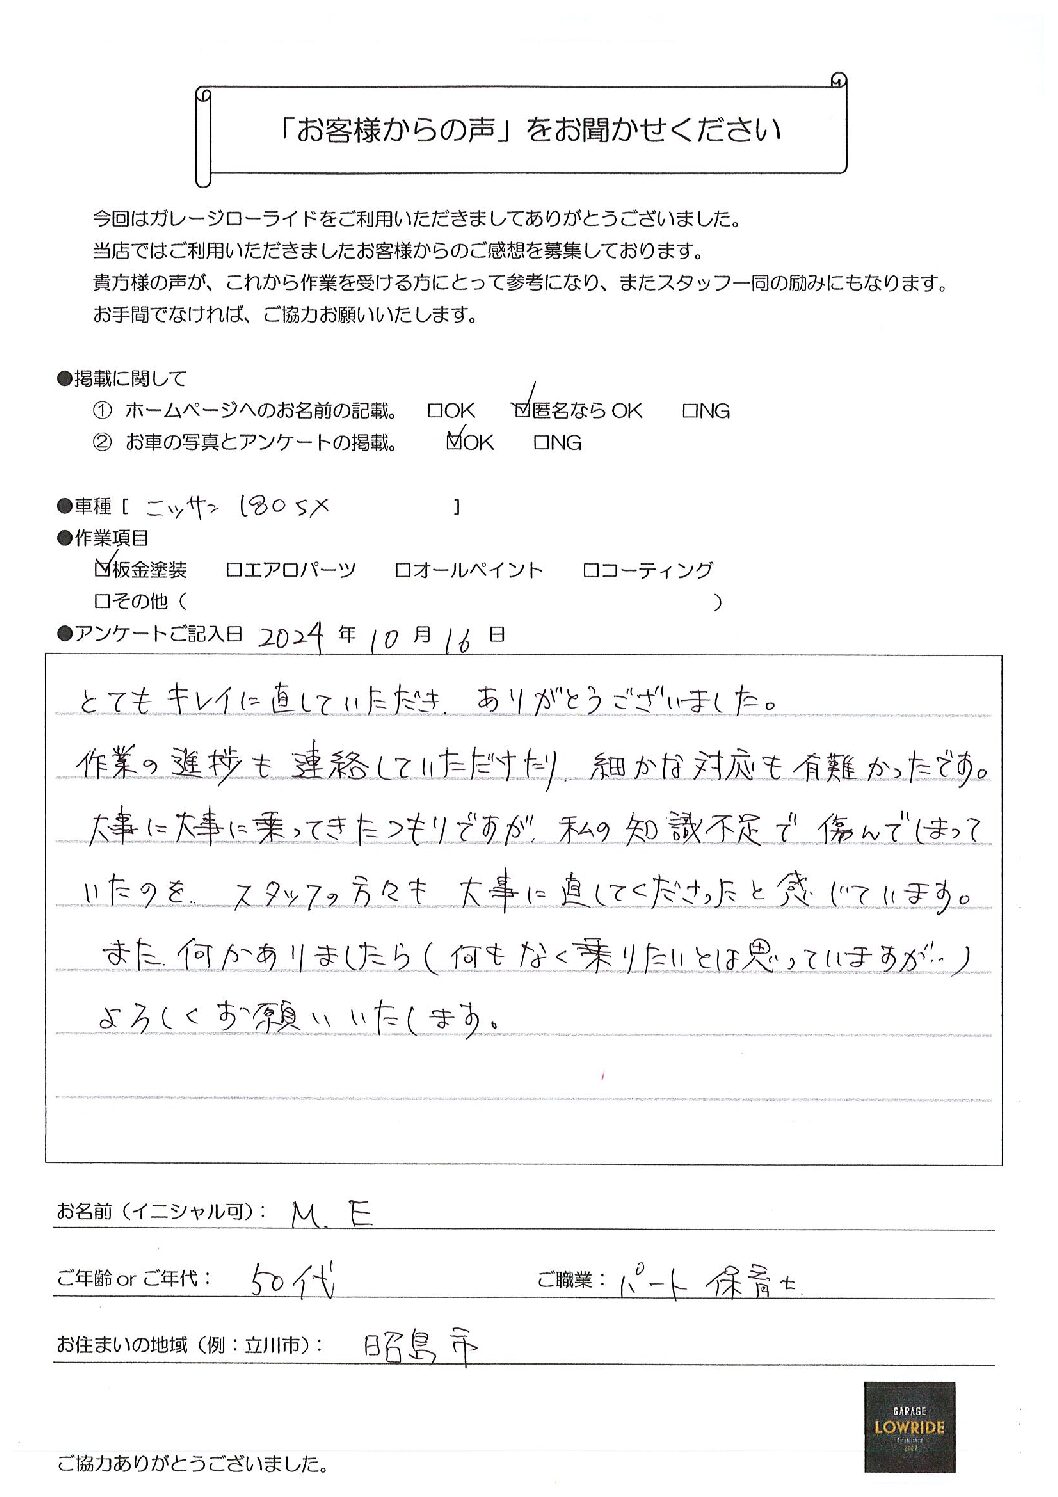 「お客様からの声」をお聞かせください
今回はガレージローライドをご利用いただきましてありがとうございました。
当店ではご利用いただきましたお客様からのご感想を募集しております。
貴方様の声が、これから作業を受ける方にとって参考になり、またスタッフ一同の励みにもなります。
お手間でなければ、ご協力お願いいたします。
●掲載に関して
① ホームページへのお名前の記載。 □OK ☑匿名なら OK □NG
② お車の写真とアンケートの掲載。 ☑OK □NG
●車種 [ ニッサン 180SX ]
●作業項目
☑板金塗装 □エアロパーツ □オールペイント □コーティング
□その他 ( )
●アンケートご記入日 2024 年 10 月 16 日
とてもキレイに直していただき、ありがとうございました。
作業の進捗も連絡していただけたり、細かな対応も有難かったです。
大事に大事に乗ってきたつもりですが、私の知識不足で傷んでしまって
いたのを、スタッフの方々も大事に直してくださったと感じています。
また、何かありましたら(何もなく乗りたいとは思っていますが‥)
よろしくお願いいたします。
お名前(イニシャル可): M. E
ご年齢 or ご年代: 50代 ご職業: パート 保育士
お住まいの地域(例:立川市): 昭島市
GARAGE
LOWRIDE
ご協力ありがとうございました。